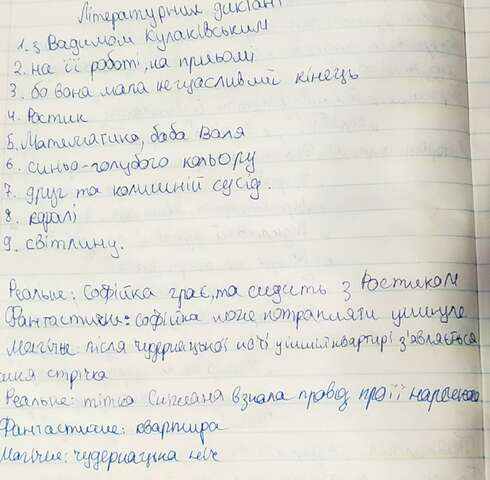 Літературний диктант
1. з Вадимом Кулаківським
2. на її роботі, на прийомі
3. бо вона мала нещасливий кінець
4. Ростик
5. Математика, баба Валя
6. синьо-голубого кольору
7. друг та колишній сусід.
8. коралі
9. світлину.
Реальне: Софійка грає, та сидить з Ростиком
Фантастичне: Софійка може потрапляти у минуле
Магічне після чудернацької ночі у іншій квартирі з'являється
стрічка
Реальне: тітка Сніжана взнала правду про її
Фантастичне: квартира
Магічне: чудернацька ніч